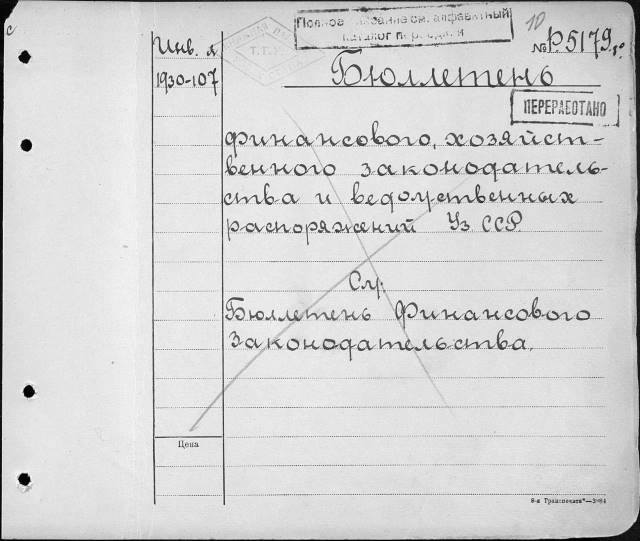 Полное описание см. алфавитный
каталог периодики
10
Инв. №
№ Р5179
1930-107
Бюллетень
ПЕРЕРАБОТАНО
финансового, хозяйст-
венного законодатель-
ства и ведомственных
распоряжений Уз ССР.
См:
Бюллетень Финансового
Законодательства.
Цена